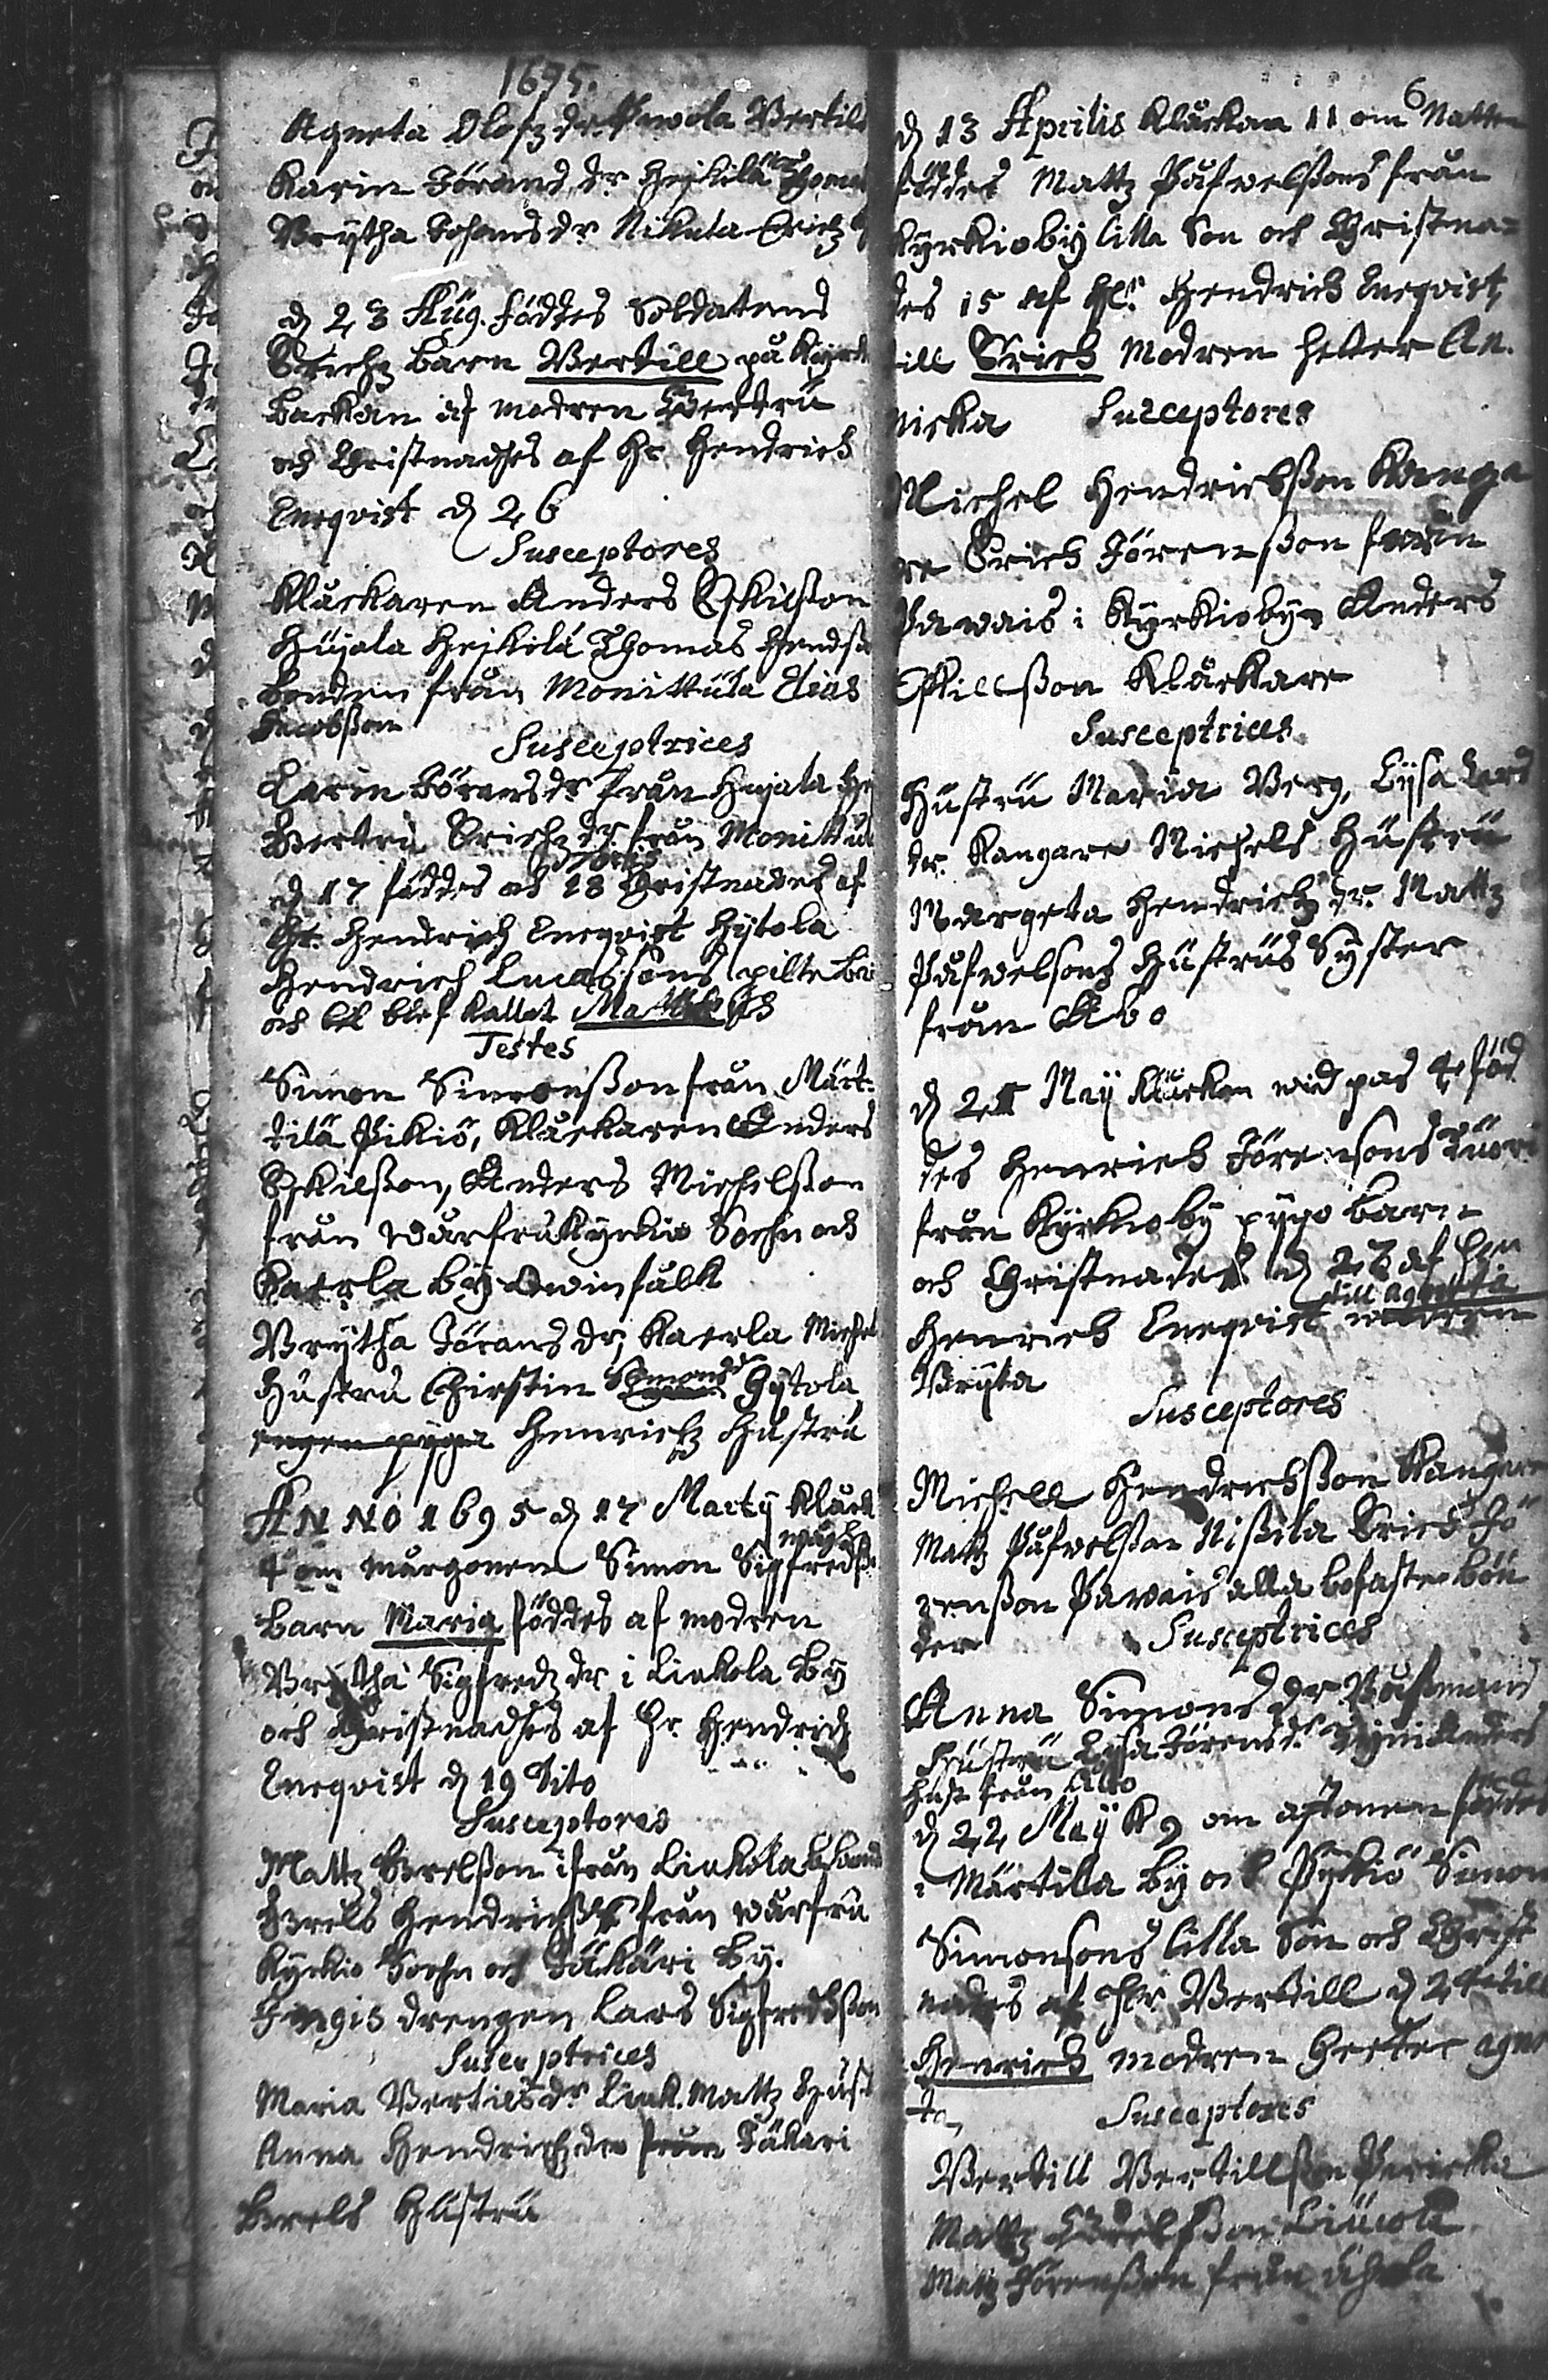 1695.
Agneta Olofz dr. Pawola Bertils
Karin Jörans dr Heikilä Thomas
Brytha Johans dr. Nikula Erichz
d 23 Aug. föddes Soldatens
Erichz barn Bertill på Kyrkio
backan af modren Gertru
och Christnades af Hr. Hendrich
Eneqvist d 26
Susceptores
Klåckaren Anders Eskilsson
Hujala Heikilä Thomas Hendss
bonden från Monittula Elias
Jacobsson
Susceptrices
Karin Jörans dr från Hujala
Gertru Erichz dr. från Monittula
d 17 föddes och 18 Christnades af
Hr. Hendrich Eneqvist Hytola
Hendrich Lucassons pilte barn
och blef kallat Matthis
Testes
Simon Simonsson från Märt-
tilä Pikiö, Klåckaren Anders
Eskilsson, Anders Michelsson
från Wårfrukyrkio Sochn och
Kaerla by Qwinfålk
Brytha Jörans dr, Kaerla Michel
Hustru Chirstin Simons dr Hytola
engen pyga Henrichz Hustru
ANNO 1695 d 17 Marty Klåck
4 om mårgonen Simon Sigfredss.
barn Maria föddes af modren
Brytha Sigfredz dr i Liukola By
och Christnades af Hr. Hendrich
Eneqvist d 19 Dito
Susceptores
Mattz Grelsson ifrån Liukola
Grels Hendrichss från wårfru
Kyrkio Sochn och Täkäri By.
drengen Lars Sigfredsson
Susceptrices
Maria Bertils dr Liuk. Mattz Hust
Anna Hendrichz dr från Täkäri
Grels Hustru
6
d 13 Aprilis Klåckan 11 om Natten
föddes Mattz Påfwelssons från
Kyrkioby lilla Son och Christna-
des 15 af Hr. Hendrich Eneqvist,
till Erich Modren heter An-
niska Susceptores
Michel Hendrichsson Kanga
re Erich Jörensson från
Pawais i Kyrkioby Anders
Eskillsson Klåckare
Susceptrices
Hustru Maria Berg, Lysa Lars
dr. Kangare Michels Hustru
Margeta Hendrichz dr. Mattz
Påfwelsons Hustrus Syster
från Åbo
d 21 May Klåckan wid pas 4 föd
des Henrich Jörensons Tuori
från Kyrkioby pygo barn
och Christnades d 26 af Hr
till Agneta
Henrich Eneqvist modren
Bryta
Susceptores
Michell Hendrichsson Kangare
Mattz Påfwelsson Nissila Erich Jö
rensson Pawais alla bofaste bön
der Susceptrices
Anna Simons dr Bussmans
Hustru Lysa Jörens dr. Anders
hust från Allo
d 22 May K 9 om aftonen föddes
i Märtilla by och Pykiö Simon
Simonsons lilla Son och Christ
nades af Hr. Bertill d 24 till
Henrich modren heeter agne
ta, Susceptores
Bertill Bertillsson Pericka
Mattz Grelsson Liucola
Mattz Jörensson från